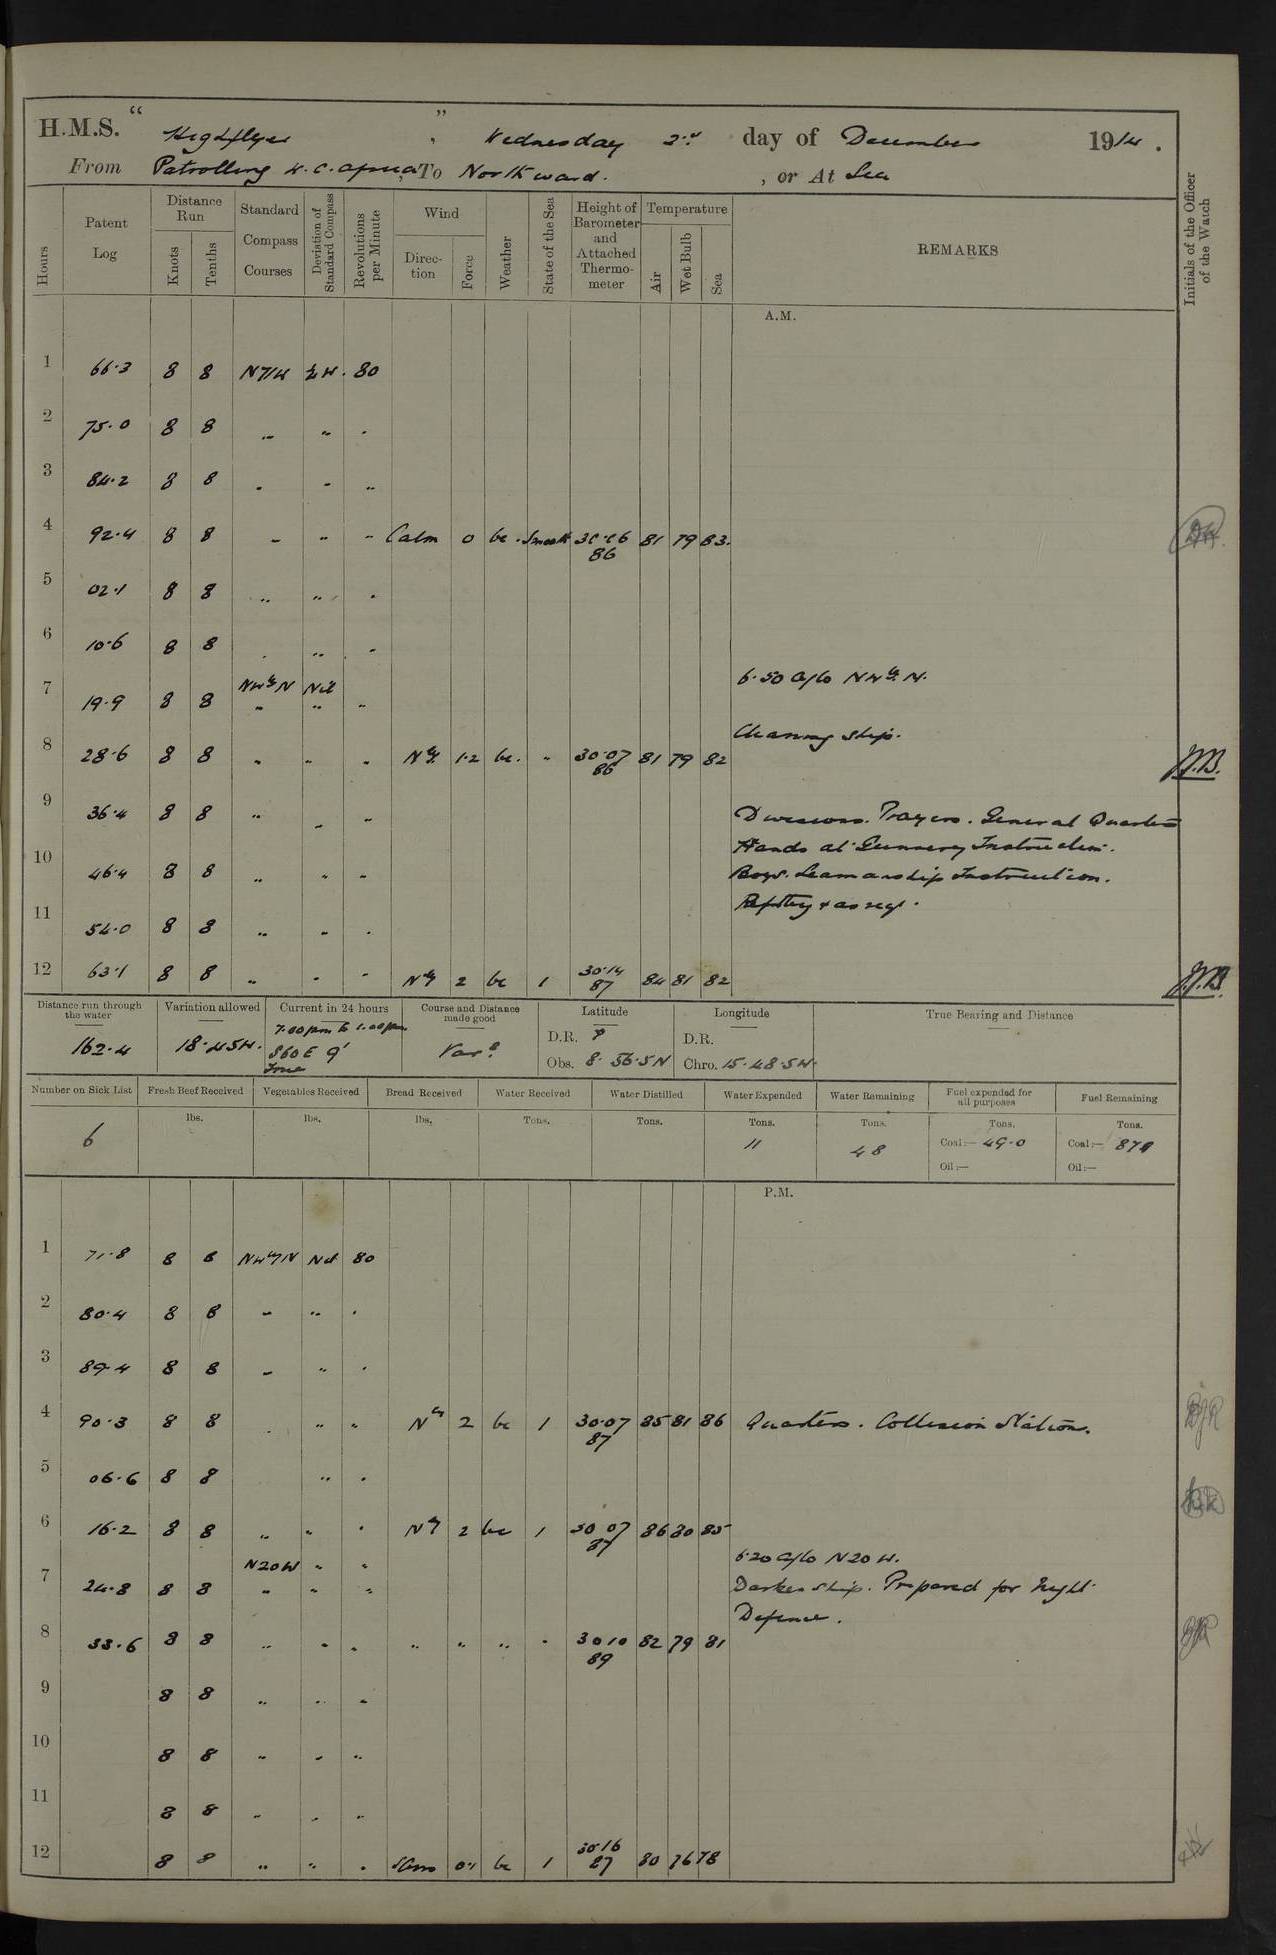 H.M.S. “ Highflyer ” , Wednesday 2nd day of December 1914 .
From Patrolling W. C. Africa, To Northward. , or At Sea
Hours
Patent Log
Distance Run
Knots
Tenths
Standard Compass Courses
Deviation of Standard Compass
Revolutions per Minute
Wind
Direction
Force
Weather
State of the Sea
Height of Barometer and Attached Thermometer
Temperature
Air
Wet Bulb
Sea
REMARKS
Initials of the Officer of the Watch
A.M.
1 66.3 8 8 N7W 80
2 75.0 8 8 " " "
3 84.2 8 8 " " "
4 92.4 8 8 " " " Calm 0 bc. Smooth 30.06 86 81 79 83.
5 02.1 8 8 " " "
6 10.6 8 8 " " "
6.50 a/c NWbyN.
7 19.9 8 8 NWbyN Nil
" " "
Cleaning Ship.
8 28.6 8 8 " " " Nly 1.2 bc. " 30.07 86 81 79 82 J.B.
9 36.4 8 8 " " " Divisions. Prayers. General Quarters
Hands at Gunnery Instruction.
10 46.4 8 8 " " " Boys. Seamanship Instruction.
Refitting & as req.
11 54.0 8 8 " " "
12 63.1 8 8 " " " Nly 2 bc 1 30.14 87 84 81 82 J.B.
Distance run through the water
162.4
Variation allowed
18.45W.
Current in 24 hours
7.00pm to 1.00pm
S60E 9'
True
Course and Distance made good
Vars
Latitude
D.R.
Obs. 8.56.5N
Longitude
D.R.
Chro. 15.48.5W.
True Bearing and Distance
Number on Sick List
6
Fresh Beef Received
lbs.
Vegetables Received
lbs.
Bread Received
lbs.
Water Received
Tons.
Water Distilled
Tons.
Water Expended
Tons.
11
Water Remaining
Tons.
48
Fuel expended for all purposes
Tons.
Coal:— 49.0
Oil:—
Fuel Remaining
Tons.
Coal:— 879
Oil:—
P.M.
1 71.8 8 8 NWbyN Nil 80
2 80.4 8 8 " " "
3 89.4 8 8 " " "
4 90.3 8 8 " " " Nly 2 bc 1 30.07 87 85 81 86 Quarters. Collision Stations.
5 06.6 8 8 " "
6 16.2 8 8 " " " Nly 2 bc 1 30.07 87 86 80 85
6.20 a/c N20W.
N20W " "
7 24.8 8 8 " " " Darken Ship. Prepared for Night
Defence.
8 33.6 8 8 " " " " " " " 30.10 89 82 79 81
9 8 8 " " "
10 8 8 " " "
11 8 8 " " "
12 8 8 " " " 0.1 bc 1 30.16 87 80 76 78